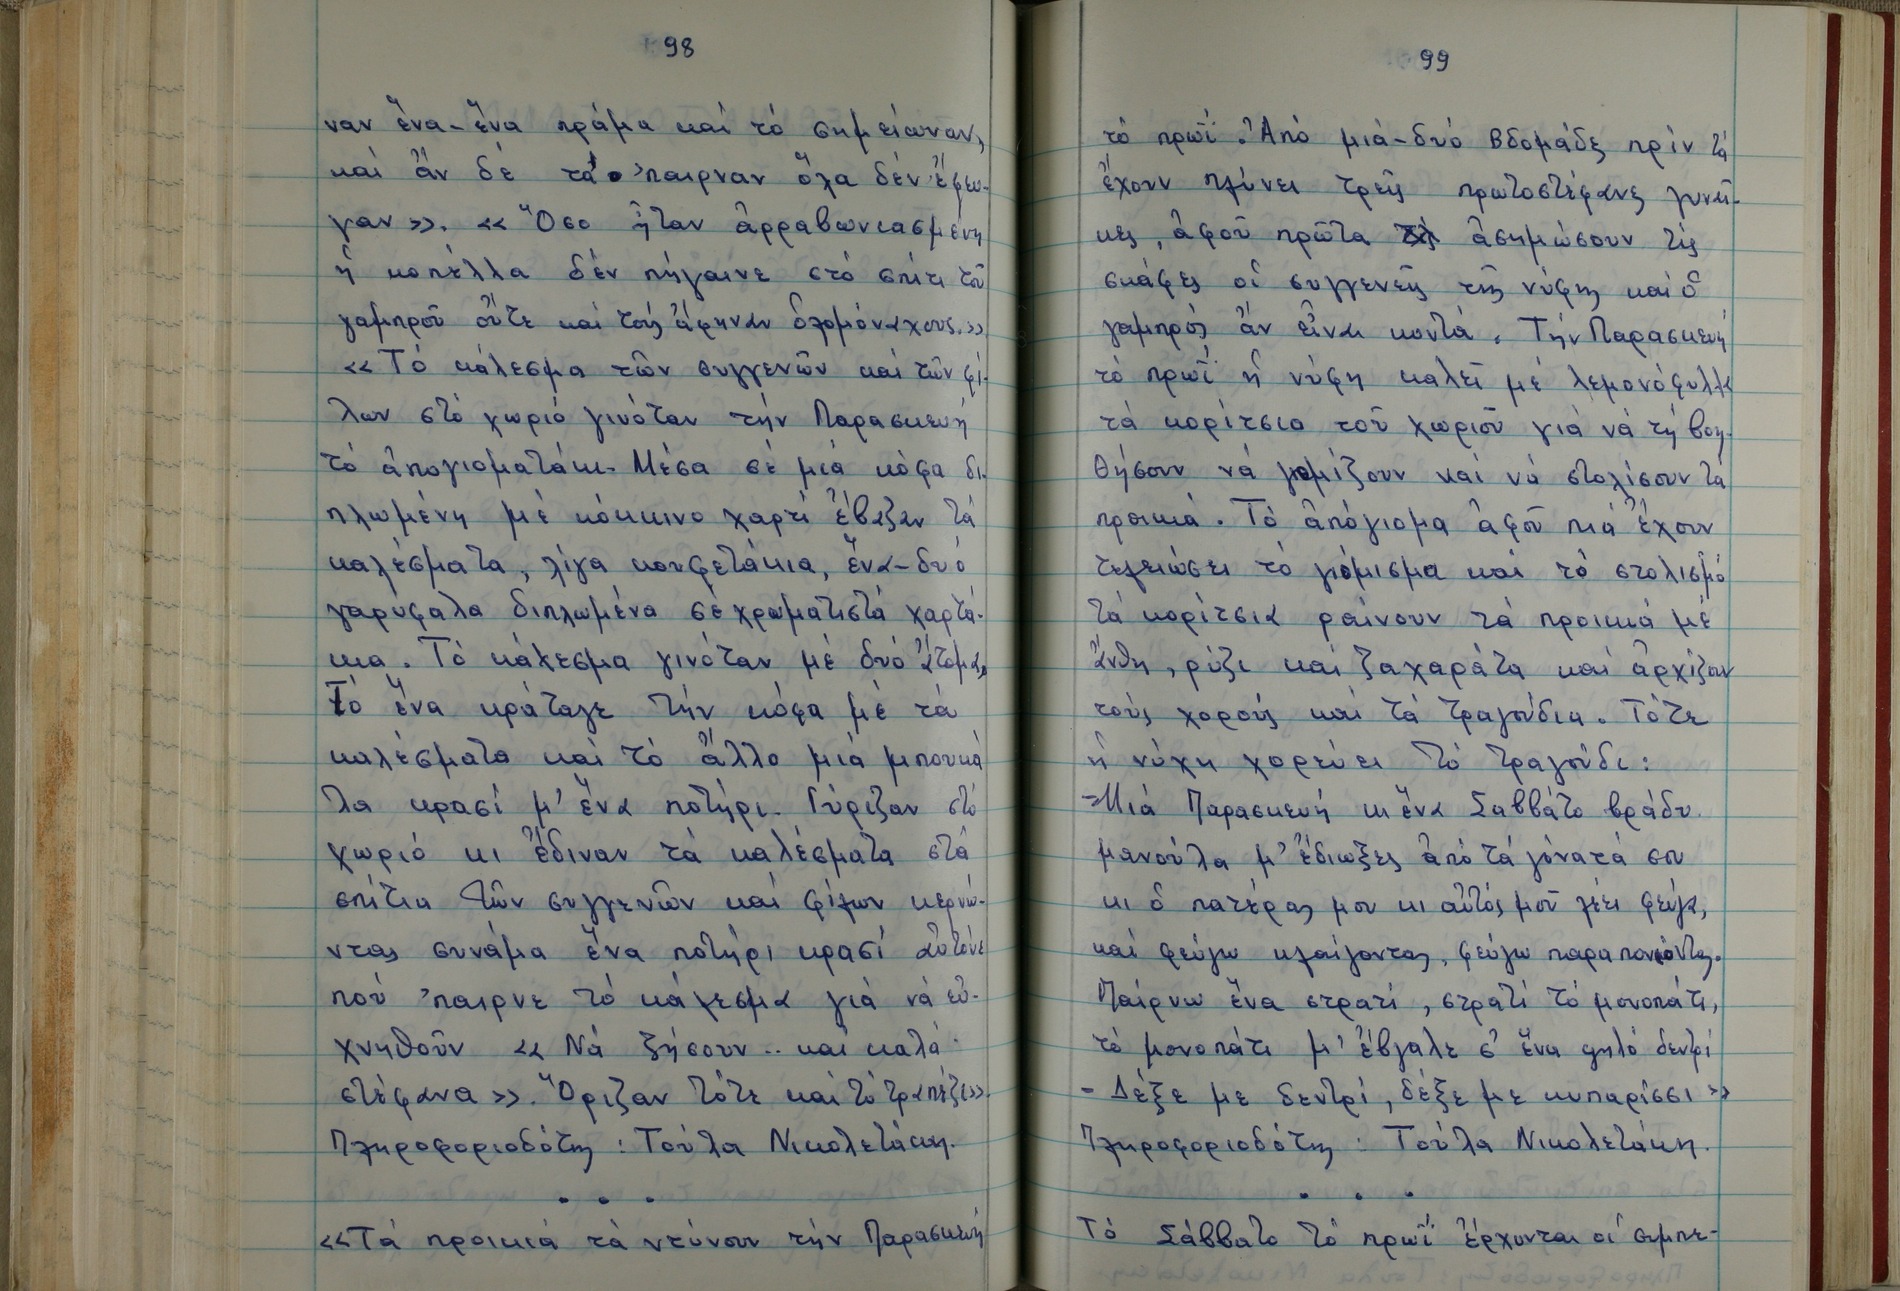 98
ναν ἕνα-ἕνα πράμα καί τό σημείωναν,
καί ἄν δέ τά 'παιρναν ὅλα δέν ἔφευ-
γαν». «Ὅσο ἦταν ἀρραβωνιασμένη
ἡ κοπέλλα δέν πήγαινε στό σπίτι τοῦ
γαμπροῦ οὔτε καί τούς ἄφηναν ὁλομόναχους.»
«Τό κάλεσμα τῶν συγγενῶν καί τῶν φί-
λων στό χωριό γινόταν τήν Παρασκευή
τό ἀπογιοματάκι. Μέσα σέ μιά κόφα δι-
πλωμένη μέ κόκκινο χαρτί ἔβαζαν τά
καλέσματα, λίγα κουφετάκια, ἕνα-δυό
γαρύφαλα διπλωμένα σέ χρωματιστά χαρτά-
κια. Τό κάλεσμα γινόταν μέ δυό ἄτομα,
Τό ἕνα κράταγε τήν κόφα μέ τά
καλέσματα καί τό ἄλλο μιά μπουκά
λα κρασί μ' ἕνα ποτήρι. Γύριζαν στό
χωριό κι ἔδιναν τά καλέσματα στά
σπίτια τῶν συγγενῶν καί φίλων κερνώ-
ντας συνάμα ἕνα ποτήρι κρασί αὐτόνε
πού 'παιρνε τό κάλεσμα γιά νά εὐ-
χηθοῦν «Νά ζήσουν.. καί καλά
στέφανα». Ὅριζαν τότε καί τό τραπέζι».
Πληροφοριοδότης: Τούλα Νικολετάκη.
. . .
«Τά προικιά τά ντύνουν τήν Παρασκευή
99
τό πρωΐ. Ἀπό μιά-δυό βδομάδες πρίν τά
ἔχουν πλύνει τρεῖς πρωτοστέφανες γυναῖ-
κες, ἀφοῦ πρῶτα ἀσημώσουν τίς
σκάφες οἱ συγγενεῖς τῆς νύφης καί ὁ
γαμπρός ἄν εἶναι κοντά. Τήν Παρασκευή
τό πρωΐ ἡ νύφη καλεῖ μέ λεμονόφυλλα
τά κορίτσια τοῦ χωριοῦ γιά νά τή βοη-
θήσουν νά γιομίζουν καί νά στολίσουν τά
προικιά. Τό ἀπόγιομα ἀφοῦ πιά ἔχουν
τελειώσει τό γιόμισμα καί τό στολισμό
τά κορίτσια ραίνουν τά προικιά μέ
ἄνθη, ρύζι καί ζαχαράτα καί ἀρχίζουν
τούς χορούς καί τά τραγούδια. Τότε
ἡ νύχη χορεύει τό τραγούδι:
-Μιά Παρασκευή κι ἕνα Σαββάτο βράδυ
μανούλα μ' ἔδιωξες ἀπό τά γόνατά σου
κι ὁ πατέρας μου κι αὐτός μοῦ λέει φεύγα,
καί φεύγω κλαίγοντας, φεύγω παραπονιόντας.
Παίρνω ἕνα στρατί, στρατί τό μονοπάτι,
τό μονοπάτι μ' ἔβγαλε σ' ἕνα ψηλό δεντρί
- Δέξε με δεντρί, δέξε με κυπαρίσσι»
Πληροφοριοδότης: Τούλα Νικολετάκη.
. . .
Τό Σάββατο τό πρωΐ ἔρχονται οἱ συμπε-